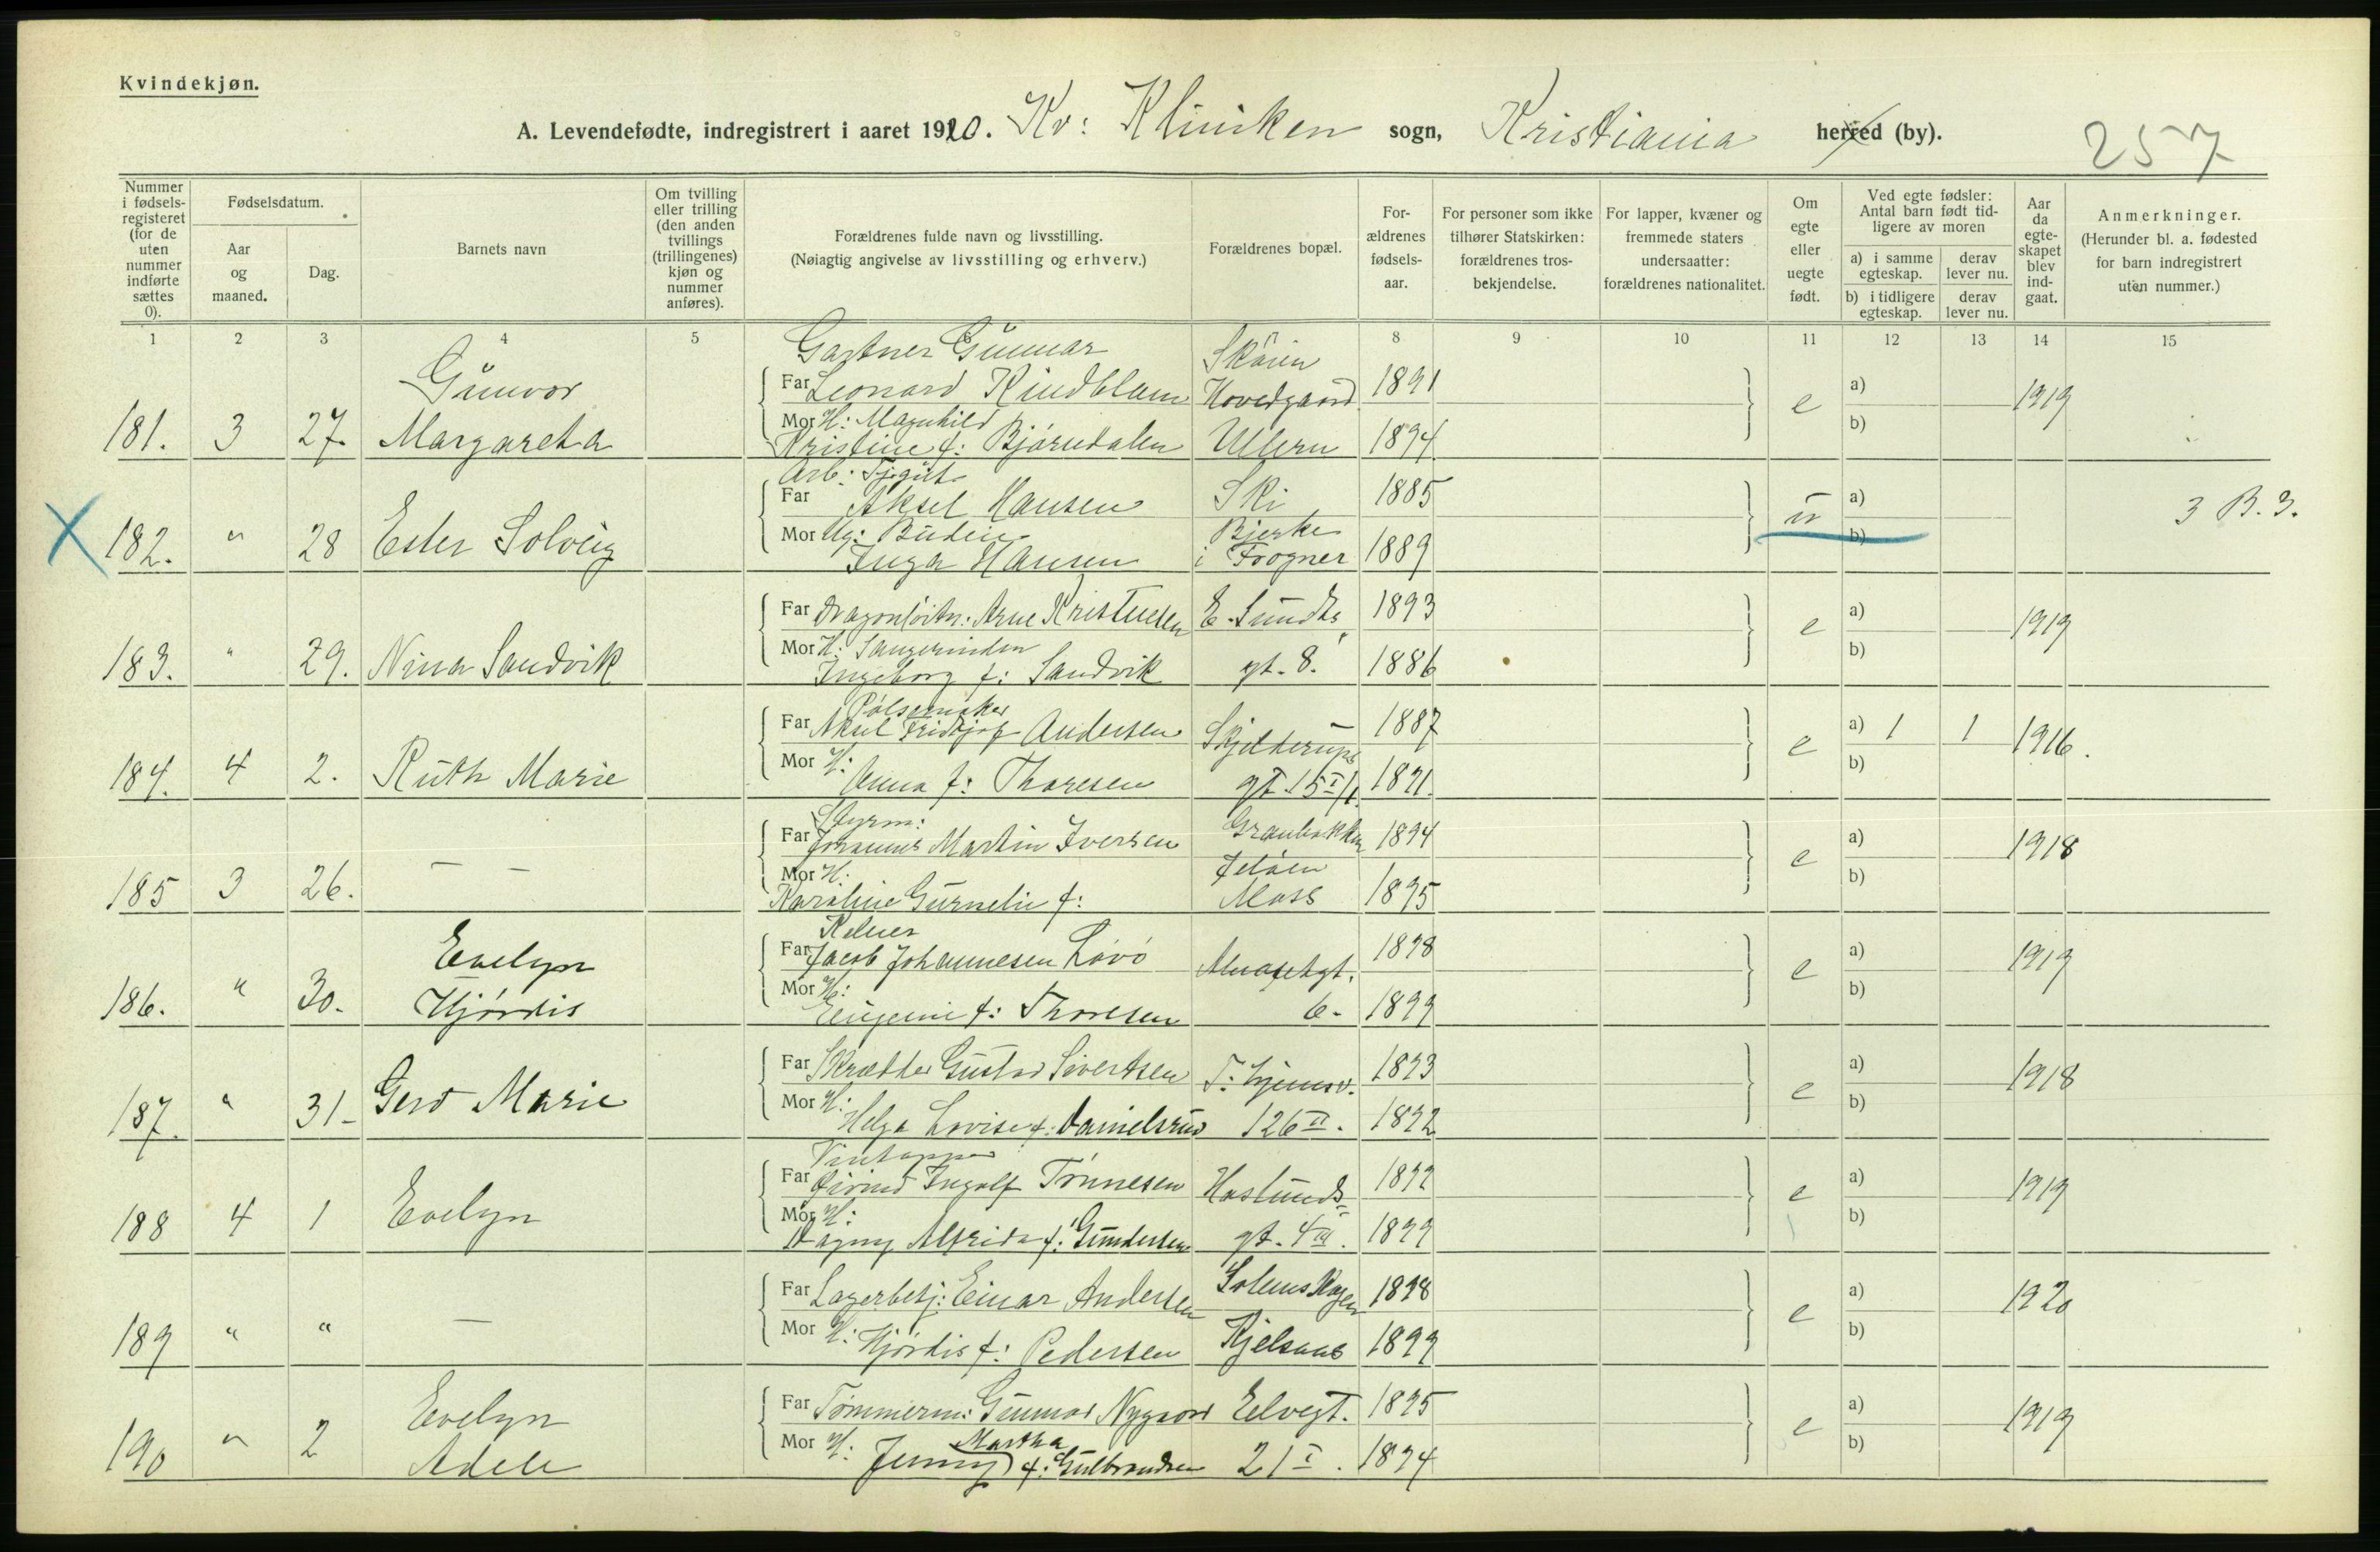 Kvindekjøn.
A. Levendefødte, indregistrert i aaret 1920. Kv: Kliniken sogn, Kristiania herred (by). 257
Nummer i fødsels-registeret (for de uten nummer indførte sættes 0).
Fødselsdatum.
Aar og maaned.
Dag.
Barnets navn
Om tvilling eller trilling (den anden tvillings (trillingenes) kjøn og nummer anføres).
Forældrenes fulde navn og livsstilling.
(Nøiagtig angivelse av livsstilling og erhverv.)
Forældrenes bopæl.
For-ældrenes fødsels-aar.
For personer som ikke tilhører Statskirken: forældrenes tros-bekjendelse.
For lapper, kvæner og fremmede staters undersaatter: forældrenes nationalitet.
Om egte eller uegte født.
Ved egte fødsler: Antal barn født tid-ligere av moren
a) i samme egteskap.
derav lever nu.
b) i tidligere egteskap.
derav lever nu.
Aar da egte-skapet blev ind-gaat.
Anmerkninger.
(Herunder bl. a. fødested for barn indregistrert uten nummer.)
1 2 3 4 5 8 9 10 11 12 13 14 15
Gartner Gunnar Skøien
Gunvor Far Leonard Kindblam Hovedgaard 1891 a)
181. 3 27. Margareta Mor H: Magnhild e b) 1919
Kristine f: Bjørndalen Ullern 1894
Arb: Tj.gut
Far Aksel Hansen Ski 1885 a)
X 182. " 28 Ester Solveig Mor Ug: Budeie Bjerke u b) 3 B. 3.
Inga Hansen i Frogner 1889
Far Dragonløitn: Arne Kristensen E. Sundts 1893 a)
183. " 29. Nina Sandvik Mor H: Sangerinden e b) 1919
Ingeborg f: Sandvik gt. 8. 1886
Pølsemaker
Far Aksel Fridtjof Andersen Skjelderups 1887 a) 1 1
184. 4 2. Ruth Marie Mor H: e b) 1916.
Anna f: Thoresen gt. 15 I/1. 1891.
Styrm:
Far Johannes Martin Iversen Granbakken 1894 a)
185 3 26. — — Mor H: Jeløen e b) 1918
Karoline Gurnelie f: Moss 1895
Kelner
Evelyn Far Jacob Johannesen Løvö 1898 a)
186. " 30. Hjørdis Mor H: e b) 1919
Eugenie f: Thoresen 6. 1899
Far Skrædder Gustav Sivertsen T: hjemsv. 1893 a)
187. " 31 Gerd Marie Mor H: e b) 1918
Helga Lovise f: Danielsrud 126 II. 1892
Vintapper
Far Øivind Ingolf Tønnesen Haslunds 1892 a)
188 4 1 Evelyn Mor H: e b) 1919
Dagny Alfrida f: Gundersen gt. 4 III. 1899
Far Lagerbetj: Einar Andersen Solemskogen 1898 a)
189 " " — Mor H: Hjørdis f: Pedersen Kjelsaas 1899 e b) 1920
Evelyn Far Tømmerm: Gunnar Nygaard Elvegt. 1895 a)
190 " 2 Adele Mor H: Jenny Martha f: Gulbrandsen 21 I. 1894 e b) 1919